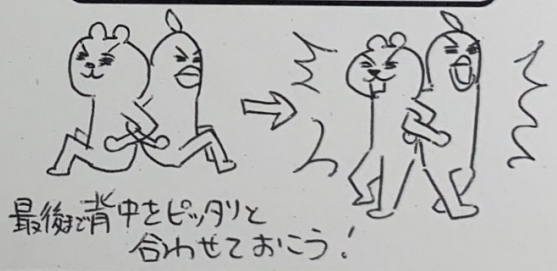 最後まで背中をピッタリと
合わせておこう!